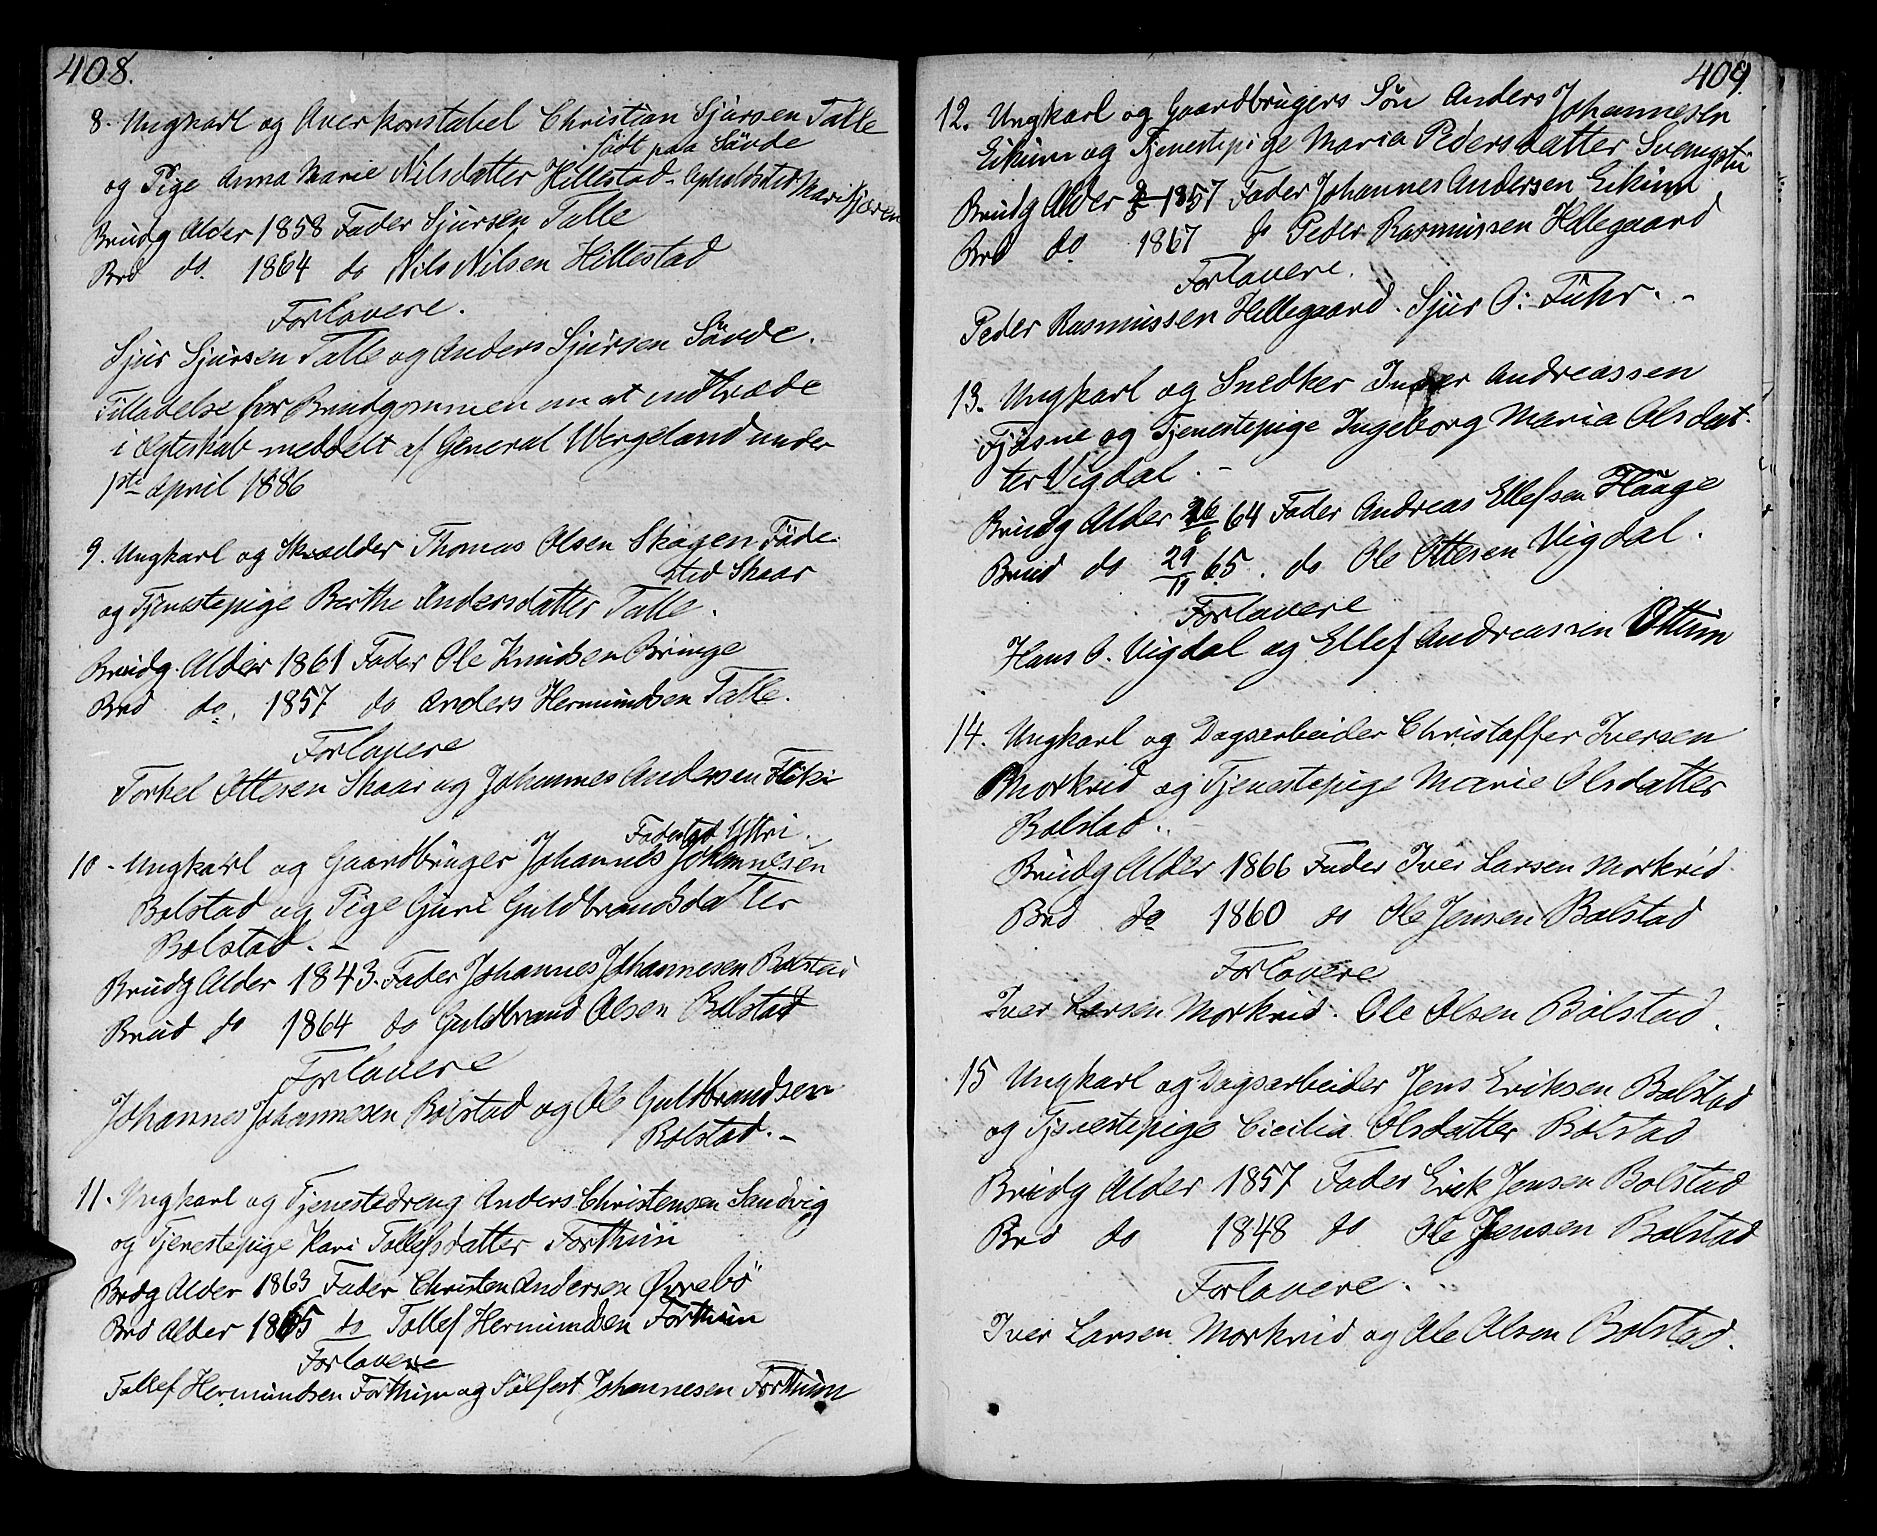 408.
8. Ungkarl og Overkonstabel Christian Sjursen Talle
født paa Søvde
og Pige Anna Marie Nilsdatter Hillestad. Opholdsted Marikjæren
Brudg Alder 1858 Fader Sjursen Talle
Brd do. 1864 do Nils Nilsen Hillestad
Forlovere.
Sjur Sjursen Talle og Anders Sjursen Søvde.
Tilladelse for Brudgommen om at indtræde
i Ægteskab meddelt af General Wergeland under
1ste April 1886
9. Ungkarl og Skrædder Thomas Olsen Skagen Føde
sted Skaar
og Tjenestepige Berthe Andersdatter Talle.
Brudg. Alder 1861 Fader Ole Knudsen Bringe
Brd do. 1857 do Anders Hermundsen Talle.
Forlovere
Torkel Ottesen Skaar og Johannes Andersen
Fødested Yttri.
10. Ungkarl og Gaardbruger Johannes Johannesen
Bolstad og Pige Guri Guldbrandsdatter
Bolstad. -
Brudg Alder 1843. Fader Johannes Johannesen Bolstad
Brud do 1864 do Guldbrand Olsen Bolstad
Forlovere
Johannes Johannesen Bolstad og Ole Guldbrandsen
Bolstad. -
11. Ungkarl og Tjenestedreng Anders Christensen Sandvig
og Tjenestepige Kari Tollefsdatter Forthun
Brdg Alder 1863 Fader Christen Andersen Øvrebö
Brd Alder 1865 do Tollef Hermundsen Forthun
Forlovere
Tollef Hermundsen Forthun og Sølfest Johannesen Forthun
409.
12. Ungkarl og Gaardbrugers Søn Anders Johannesen
Eikum og Tjenestepige Maria Pedersdatter
Brudg Alder 1857 Fader Johannes Andersen Eikum
Brd do 1867 do Peder Rasmussen Hellegaard
Forlovere.
Peder Rasmussen Hellegaard. Sjur O: Fuhr. -
13. Ungkarl og Snedker Iver Andreassen
Fjøsne og Tjenestepige Ingeborg Maria Olsdat-
ter Vigdal. -
Brudg Alder 26/6 64 Fader Andreas Ellefsen Hauge
Brud do 29/11 65. do Ole Ottesen Vigdal.
Forlovere
Hans O. Vigdal og Ellef Andreassen Ottum
14. Ungkarl og Dagsarbeider Christoffer Iversen
Morkrid og Tjenestepige Marie Olsdatter
Bolstad..
Brudg Alder 1866 Fader Iver Larsen Morkrid.
Brd do 1860 do Ole Jensen Bolstad
Forlovere
Iver Larsen Morkrid. Ole Olsen Bolstad.
15 Ungkarl og Dagsarbeider Jens Eriksen Bolstad
og Tjenestepige Cicilia Olsdatter Bolstad
Brudg Alder 1857 Fader Erik Jensen Bolstad
Brd do 1848 do Ole Jensen Bolstad
Forlovere.
Iver Larsen Morkrid og Ole Olsen Bolstad.